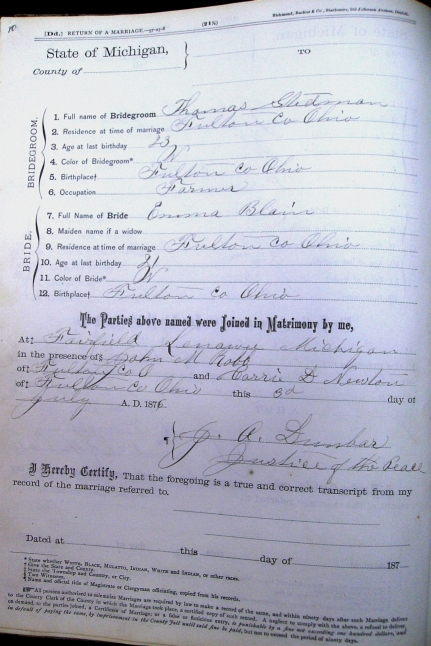 [Dd.] RETURN OF A MARRIAGE.
(215)
State of Michigan,
TO
County of
BRIDEGROOM.
1. Full name of Bridegroom Thomas Stedman
2. Residence at time of marriage Fulton Co Ohio
3. Age at last birthday 23
4. Color of Bridegroom* W
5. Birthplace† Fulton Co Ohio
6. Occupation Farmer
BRIDE.
7. Full Name of Bride Emma Blair
8. Maiden name if a widow
9. Residence at time of marriage Fulton Co Ohio
10. Age at last birthday 21
11. Color of Bride* W
12. Birthplace† Fulton Co Ohio
The Parties above named were Joined in Matrimony by me,
At‡ Fairfield Lenawee Michigan
in the presence of§ John M Robb
of‡ Fulton Co O and Carrie D Newton
of‡ Fulton Co Ohio this 3d day of
July A. D. 1876.
J. A. Dunbar
Justice of the Peace
I Hereby Certify, That the foregoing is a true and correct transcript from my
record of the marriage referred to.
Dated at this day of 187
* State whether WHITE, BLACK, MULATTO, INDIAN, WHITE and INDIAN, or other races.
† Give the State and County.
‡ State the Township and County, or City.
§ Two Witnesses.
¶ Name and official title of Magistrate or Clergyman officiating, copied from his records.
As persons authorized to solemnize Marriages are required by law to make a record of the same, and within ninety days after such Marriage deliver
to the County Clerk of the County in which the Marriage took place, a certified copy of such record. A neglect to comply with the above, a refusal to deliver
on demand, to the parties joined, a Certificate of Marriage, or a false or fictitious entry, is punishable by a fine not exceeding one hundred dollars, and
in default of paying the same, by imprisonment in the County Jail until said fine is paid, but not to exceed the period of ninety days.